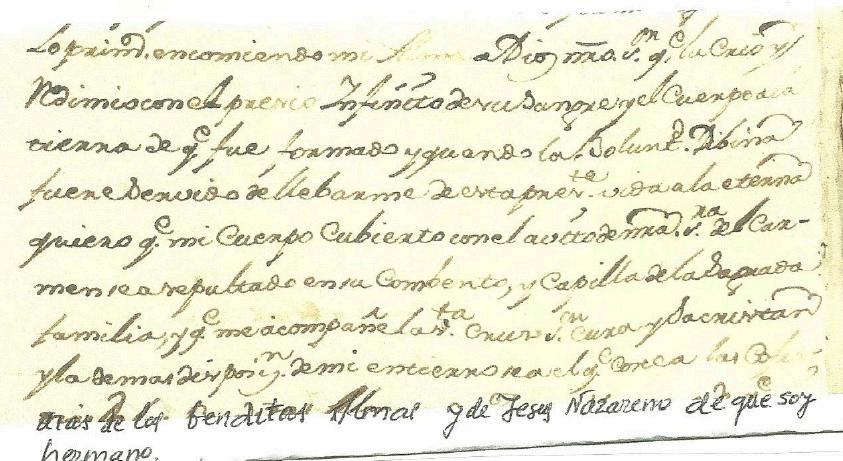 Lo primo. encomiendo mi Alma a Dios nro. Sr. qe. la Crio y
Redimio con el precio Infinito de su Sangre y el Cuerpo a la
tierra de qe. fue formado y quando la Voluntd. Dibina
fuere Servido de llebarme de esta preste. vida a la eterna
quiero qe. mi Cuerpo Cubierto con el avito de nra. Sra. del Car-
men sea sepultado en su Combento, y Capilla de la Sagrada
familia, y qe. me acompañe la Sta. Cruz Sr. Cura y Sacristan
y la demas disposn. de mi entierro sea el qe. las
de las benditas Almas y de Jesus Nazareno de que soy
hermano.